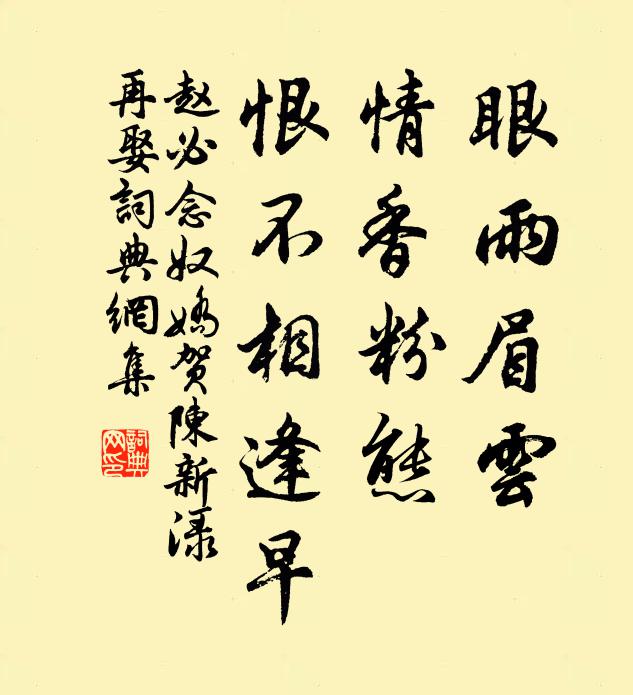 眼雨眉雲
情香粉態
恨不相逢早
赵必念奴嬌贺陳新渌
再娶詞典網集
詞典网印